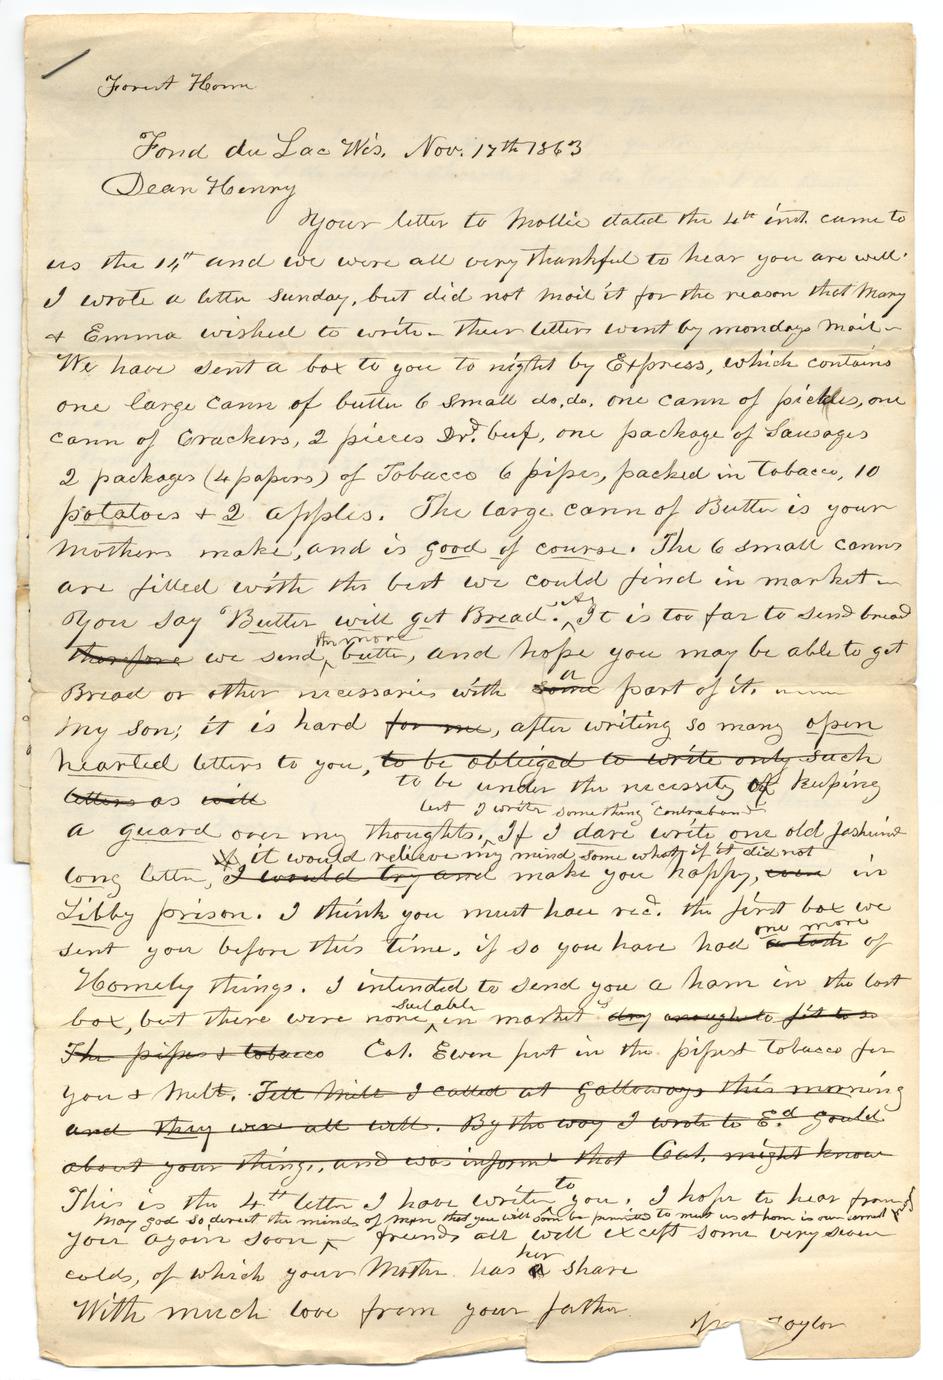 Forest Home
Fond du Lac Wis. Nov. 17th 1863
Dear Henry
Your letter to Mollie dated the 4th inst. came to
us the 14th and we were all very thankful to hear you are well.
I wrote a letter Sunday, but did not mail it for the reason that Mary
& Emma wished to write – their letters went by mondays mail –
We have sent a box to you to night by Express, which contains
one large cann of butter 6 small do, do. one cann of pickles, one
cann of Crackers, 2 pieces Drd. beef, one package of Sausages
2 packages (4 papers) of Tobacco 6 pipes, packed in tobacco, 10
potatoes & 2 apples. The large cann of Butter is your
Mothers make, and is good of course. The 6 small canns
are filled with the best we could find in market –
You say "Butter will get Bread." As It is too far to send bread
therefore we send more butter, and hope you may be able to get
Bread or other necessaries with some a part of it.
My son; it is hard for me, after writing so many open
hearted letters to you, to be obliged to write only such
letters as will to be under the necessity of keeping
lest I write something "contraband"
a guard over my thoughts. If I dare write one old fashiond
it would relieve my mind some what, if it did not
long letter, I would try and make you happy, even in
Libby prison. I think you must have recd. the first box we
one more
sent you before this time, if so you have had a taste of
Homely things. I intended to send you a ham in the last
suitable
box, but there were none in market dry enough to fit to so
The pipes & tobacco Cat. Ewen put in the pipes & Tobacco for
you & Milt. Tell Milt I called at Galloways this morning
and they were all well. By the way I wrote to Ed. Gould
about your things, and was informd that Cat. might know
This is the 4th letter I have writen to you. I hope to hear from
May god so direct the minds of men that you will soon be permited to meet us at home is our earnest
you again soon friends all well except some very severe
colds, of which your Mother has her a share
With much love from your father
Taylor